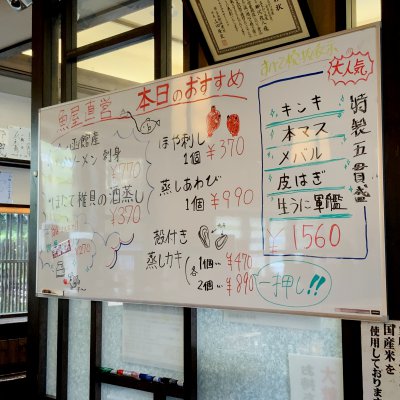 魚屋直営
本日のおすすめ
函館産
ソーメン 刺身
¥770
ほたて稚貝の酒蒸し
¥370
270
ほや刺し
1個 ¥370
蒸しあわび
1個 ¥990
殻付き
蒸しカキ
各
1個 ¥470
2個 ¥890
大人気
特製五貫盛
キンキ
本マス
メバル
皮はぎ
生うに軍艦
¥1560
一押し!!
国産米を
使用しており